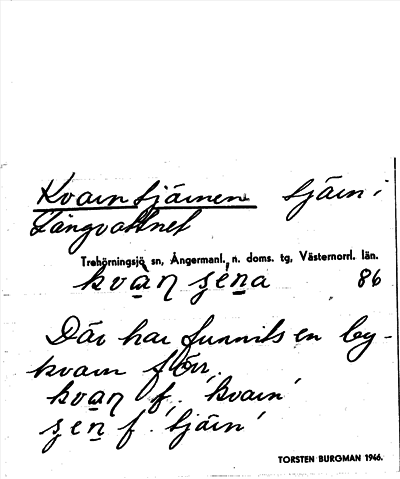 Kvarntjärnen tjärn i
Långvattnet
Trehörningsjö sn, Ångermanl. n. doms. tg, Västernorrl. län.
86
Där har funnits en by-
kvarn förr.
f. 'kvarn'
f. 'tjärn'
TORSTEN BURGMAN 1946.